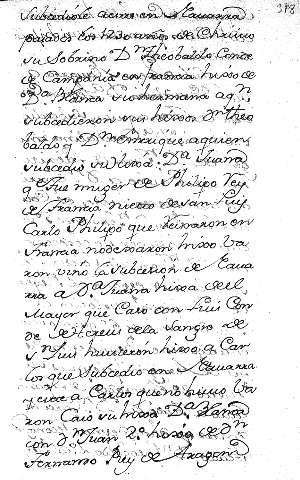 318
subcediole
pasados
su Sobrino Dⁿ Theobaldo Conde
de Campania en francia hixo de
Dª Blanca su hermana a qⁿ
subcedieron sus hixos Dⁿ Theo
baldo y Dⁿ Enrique a quien
subcedio su hixa Dª Juana
q fue muger de Philipo Rey
de Francia nieto de San Luis
Carlo Philipo que Reinaron en
Francia no dexaron hixo va
ron vino la subcesion de Nava
rra a Dª Juana hixa del
Mayor que Caso con Luis Con
de de la sangre de
Sⁿ Luis huvieron hixo a Car
los que subcedio en Navarra
y este a Carlos que no huvo va
ron Caso su hixa Dª Blanca
con Dⁿ Juan 2º hixo de Dⁿ
Fernando Rey de Aragon